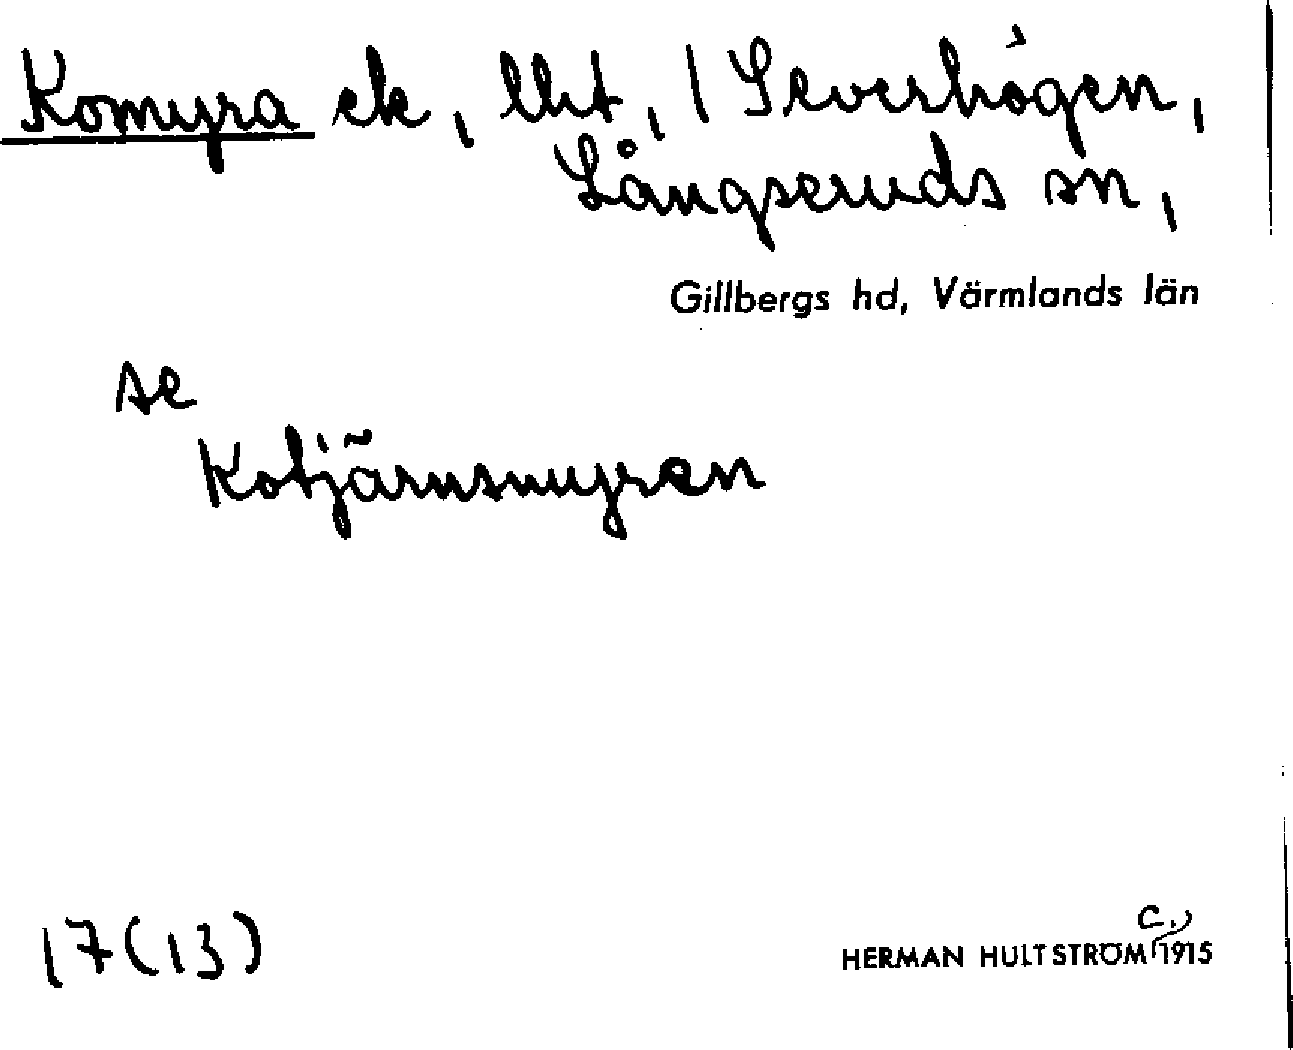 Komyra ek, lht, / Severhögen,
Långseruds sn,
Gillbergs hd, Värmlands län
se
Kotjärnsmyren
17(13)
HERMAN HULTSTRÖM c. 1915